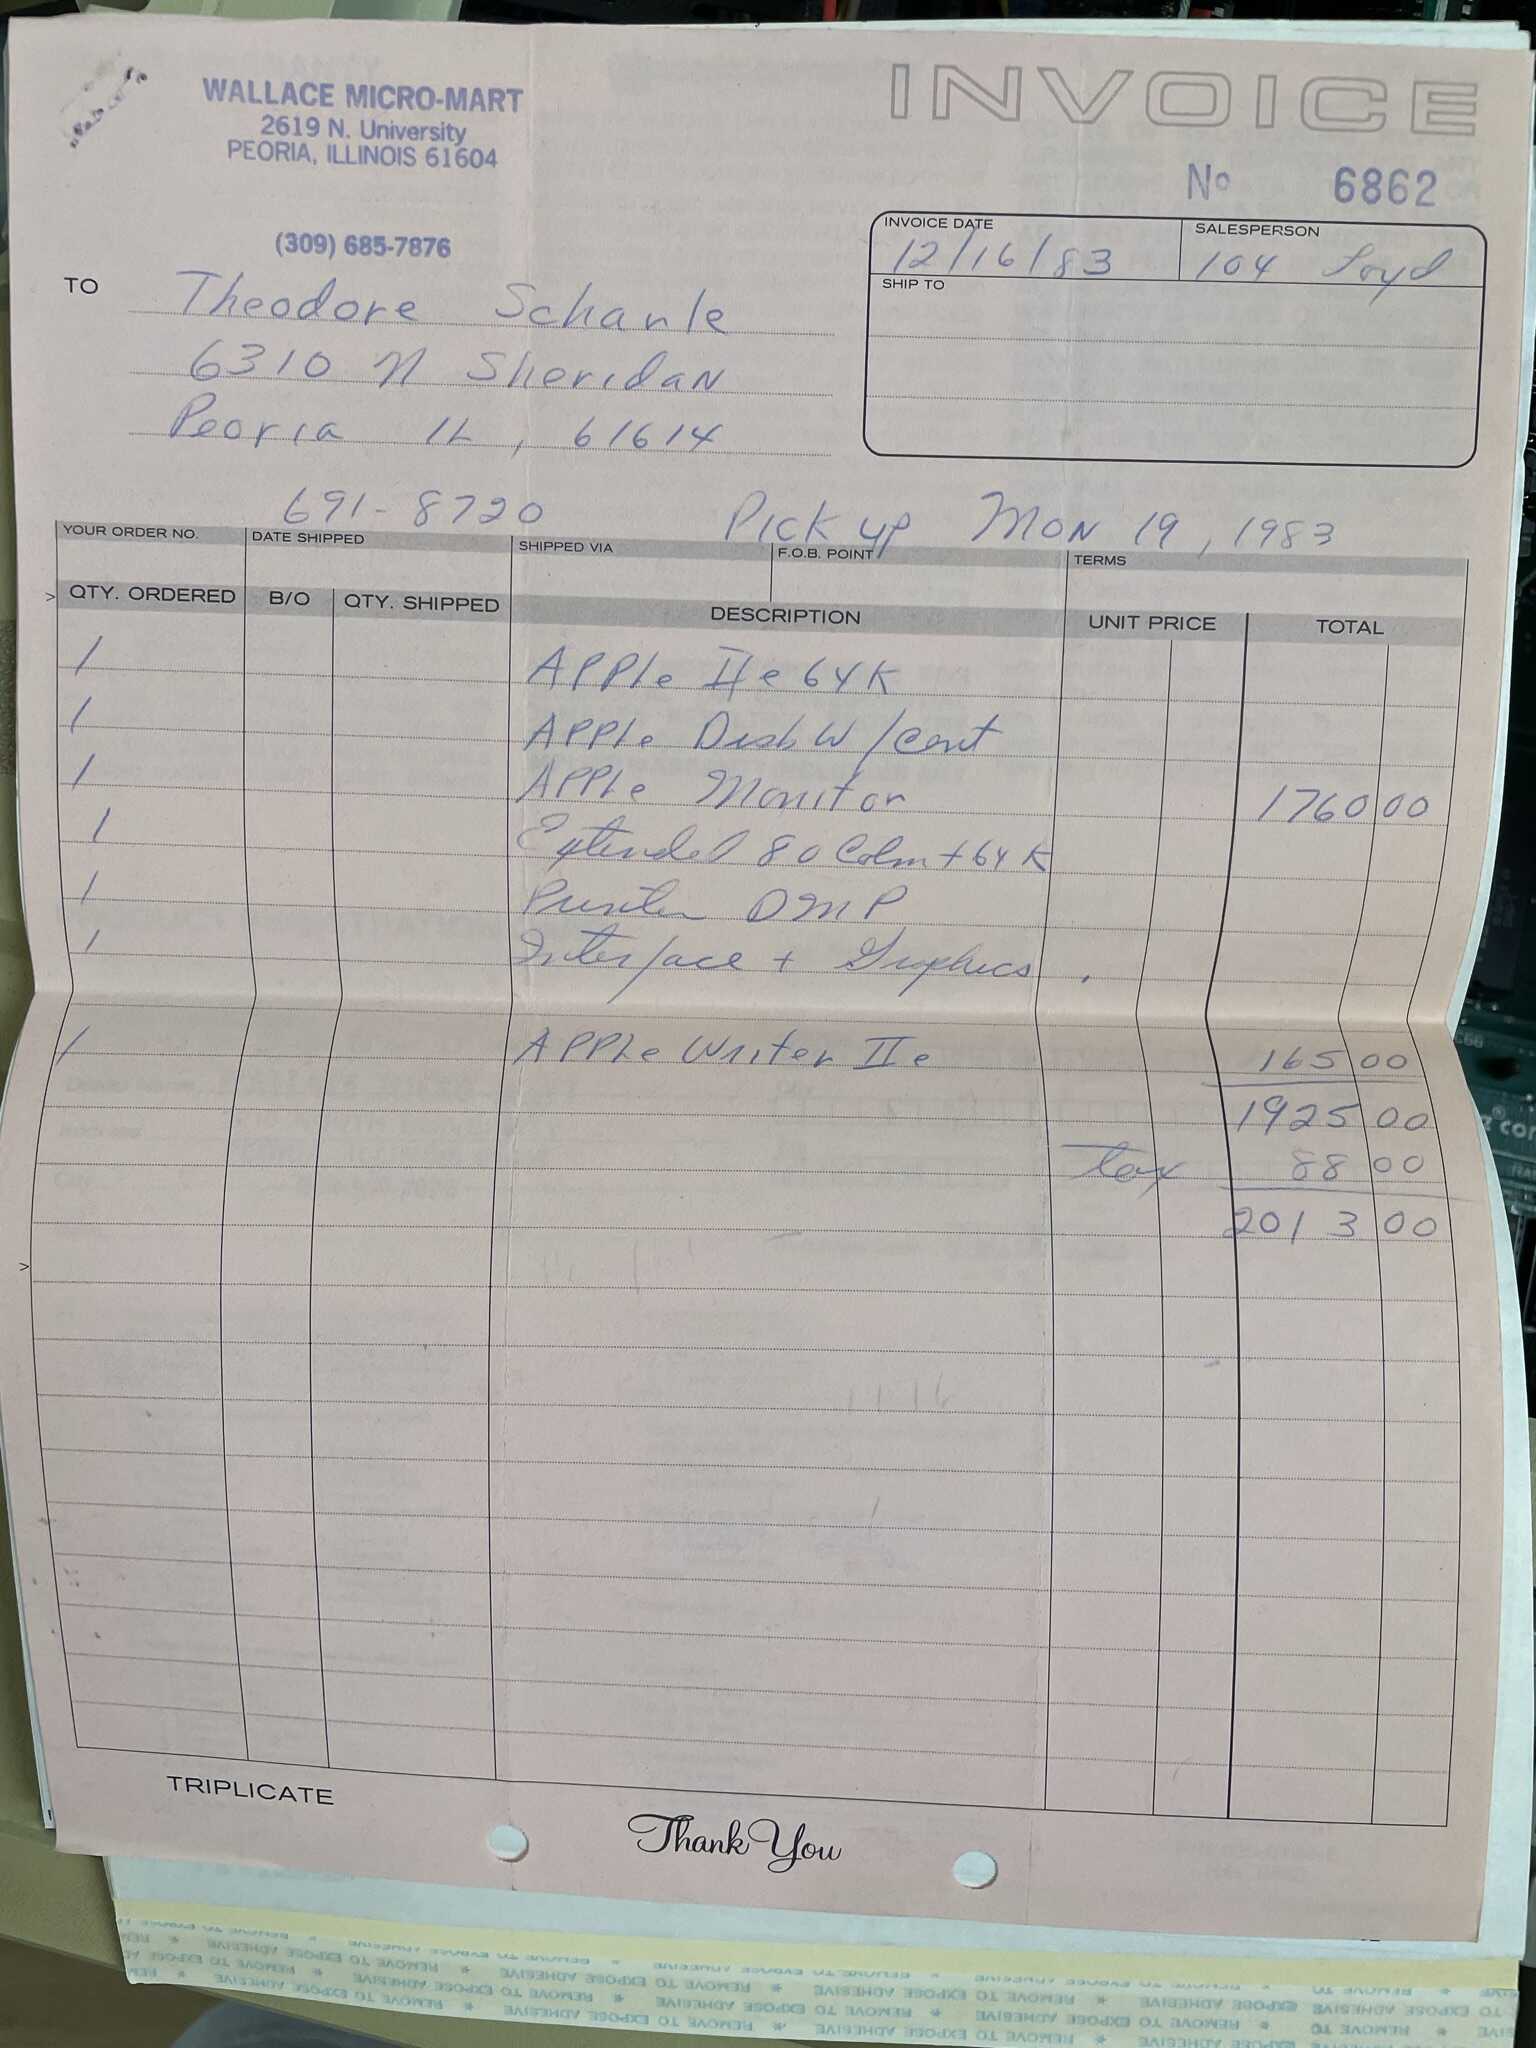 WALLACE MICRO-MART
2619 N. University
PEORIA, ILLINOIS 61604
(309) 685-7876
INVOICE
No 6862
INVOICE DATE
12/16/83
SALESPERSON
104 Loyd
SHIP TO
TO
Theodore Schanle
6310 N Sheridan
Peoria IL, 61614
691-8720
Pick up Mon 19, 1983
YOUR ORDER NO. DATE SHIPPED SHIPPED VIA F.O.B. POINT TERMS
> QTY. ORDERED B/O QTY. SHIPPED DESCRIPTION UNIT PRICE TOTAL
1 APPle IIe 64K
1 APPle Disk W/Cont
1 APPle Monitor 1760 00
1 Extended 80 Colm + 64K
1 Printer DMP
1 Interface + Graphics
1 APPle Writer IIe 165 00
1925 00
tax 88 00
2013 00
>
TRIPLICATE
Thank You
REMOVE TO EXPOSE ADHESIVE * REMOVE TO EXPOSE ADHESIVE * REMOVE TO EXPOSE ADHESIVE